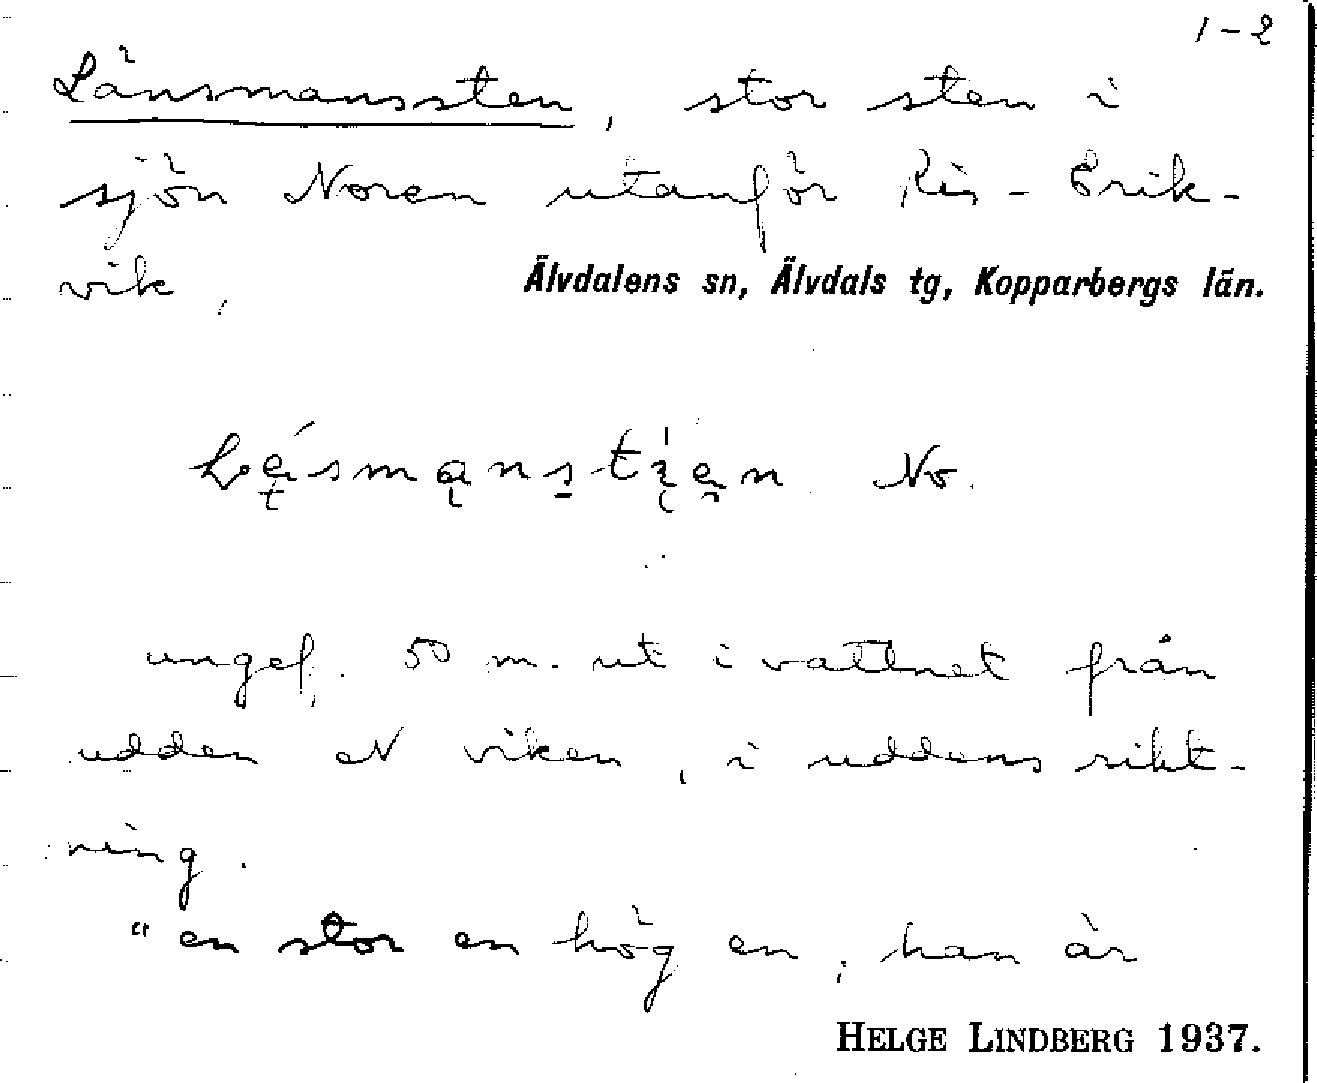 1-2
Länsmanssten, stor sten i
sjön Noren utanför Ris-Erik-
vik,
Älvdalens sn, Älvdals tg, Kopparbergs län.
No.
ungef. 50 m. ut i vattnet från
udden N viken, i uddens rikt-
ning.
"en stor en hög en, han är
HELGE LINDBERG 1937.